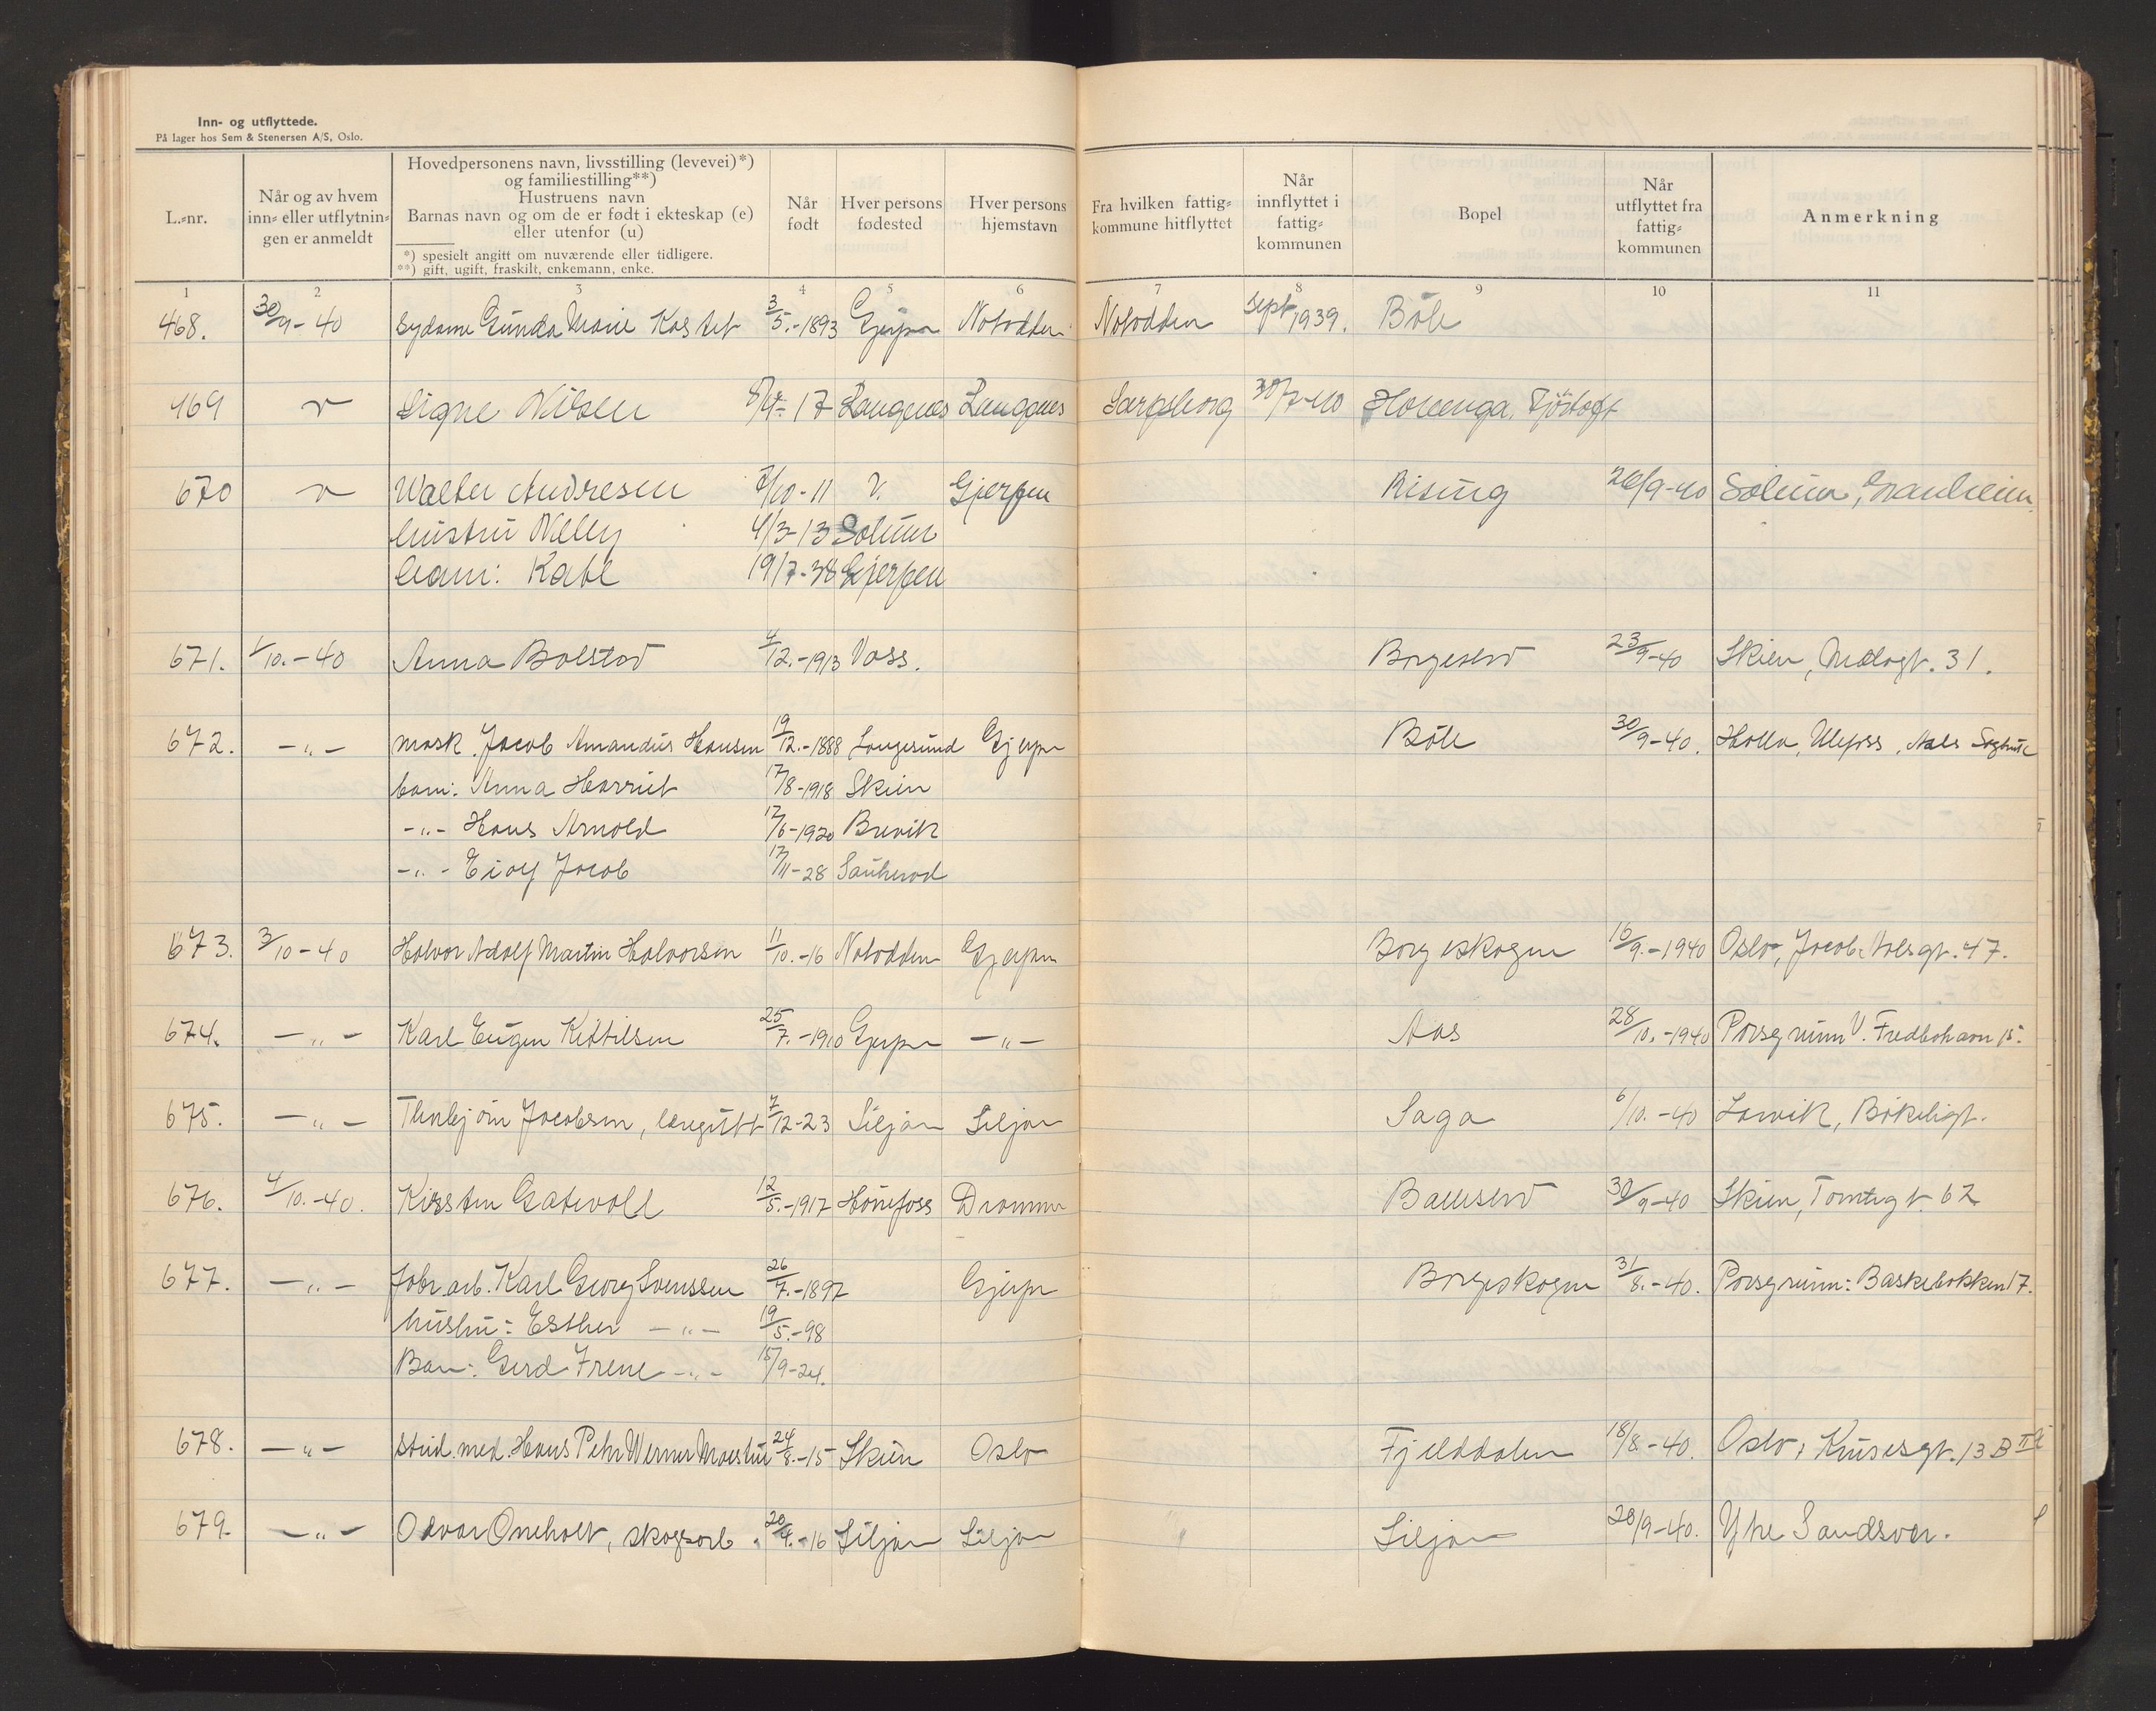 Inn- og utflyttede.
På lager hos Sem & Stenersen A/S, Oslo.
L.-nr.
Når og av hvem inn- eller utflytningen er anmeldt
Hovedpersonens navn, livsstilling (levevei)*)
og familiestilling**)
Hustruens navn
Barnas navn og om de er født i ekteskap (e)
eller utenfor (u)
*) spesielt angitt om nuværende eller tidligere.
**) gift, ugift, fraskilt, enkemann, enke.
Når født
Hver persons fødested
Hver persons hjemstavn
Fra hvilken fattig-kommune hitflyttet
Når innflyttet i fattig-kommunen
Bopel
Når utflyttet fra fattig-kommunen
Anmerkning
1 2 3 4 5 6 7 8 9 10 11
468. 30/9-40 Sydame Gunda Marie Kastet 3/5.-1893 Gjerpen Notodden Notodden Sept 1939. Böle
469 Signe Nilsen 17 Langnes Langnes Sarpsborg 30/7-40 Hovenga, Tjöstoft
670 Walter Andresen 7/10-11 V. Gjerpen Rising 20/9-40 Solum, Granheim
hustru Nelly 4/3-13 Solum
barn: Kate 19/7-38 Gjerpen
671. 1/10.-40 Anna Bolstad 4/12.-1913 Voss. Borgestad 23/9-40 Skien, Mælagt. 31.
672. -"- mask. Jacob Amandus Hansen 19/12.-1888 Langesund Gjerpen Böle 30/9-40. Holla, Ulefoss, Aals Sagbruk
barn: Anna Harriet 17/8-1918 Skien
-"- Hans Arnold 17/6-1920 Brevik
-"- Eiolf Jacob 17/11-28 Sauherad
673. 3/10-40 Halvor Adolf Martin Halvorsen 11/10.-16 Notodden Gjerpen Borgeskogen 16/9.-1940 Oslo, Jacob Aalsgt. 47.
674. -"- Karl Eugen Kittilsen 25/7.-1910 Gjerpen -"- Aas 28/10.-1940 Porsgrunn V. Fredbohavn 15.
675. -"- Thorbjörn Jacobsen, læregutt 7/12-23 Siljan Siljan Saga 6/10.-40 Larvik, Bökeligt.
676. 4/10.-40. Kirsten Gatevoll 12/5.-1917 Hönefoss Drammen Ballestad 30/9-40 Skien, Tomtegt. 62
677. -"- Jobr.arb. Karl Georg Svenssen 26/7.-1897 Gjerpen Borgeskogen 31/8.-40. Porsgrunn: Baskebakken 17.
hustru: Esther -"- 19/5.-98
Barn: Gerd Irene -"- 15/9-24.
678. -"- stud. med. Hans Petter Werner 24/8.-15 Skien Oslo Fjelddalen 18/8.-40. Oslo, Krusesgt. 13 B II
679. -"- Odvar Oneholt, skogsarb. 20/4.-16 Siljan Siljan Siljan 28/9-40. Ytre Sandsver.